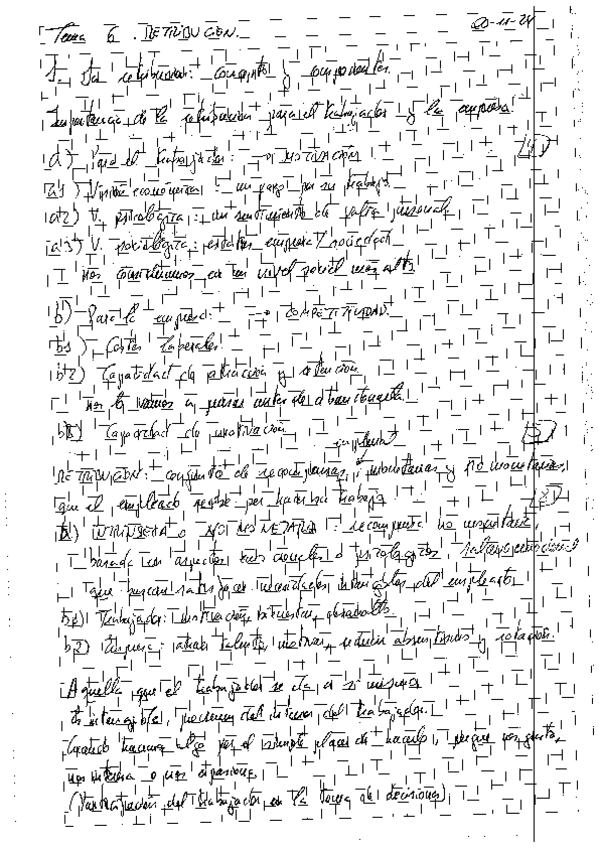 Tema 6. RETRIBUCIÓN. 20-11-24
1. La retribución: concepto y componentes.
Importancia de la retribución para el trabajador y la empresa
a) Para el trabajador: → MOTIVACIÓN
a1) Visión económica: un pago por su trabajo.
a2) V. psicológica: un sentimiento de valía personal
a3) V. sociológica: estatus empresa/sociedad
nos consideramos en un nivel social más alto
b) Para la empresa: → COMPETITIVIDAD.
b1) Costes laborales.
b2) Capacidad de atracción y retención
nos lo vamos a pensar antes de abandonarla
b3) Capacidad de motivación
RETRIBUCIÓN: conjunto de recompensas, monetarias y no monetarias,
que el empleado recibe por hacer su trabajo
a) INTRÍNSECA o NO MONETARIA: recompensa no monetaria,
basada en aspectos emocionales o psicológicos
que buscan satisfacer necesidades del empleado
b1) Trabajador: motivación, bienestar,
b2) Empresa: atraer talento, motivar, reducir absentismo y rotación.
Aquella que el trabajador se da a sí mismo
Es intangible, proviene del interior del trabajador.
Cuando hacemos algo por el simple placer de hacerlo, porque nos gusta,
nos interesa o nos apasiona
(Participación del trabajador en la toma de decisiones)